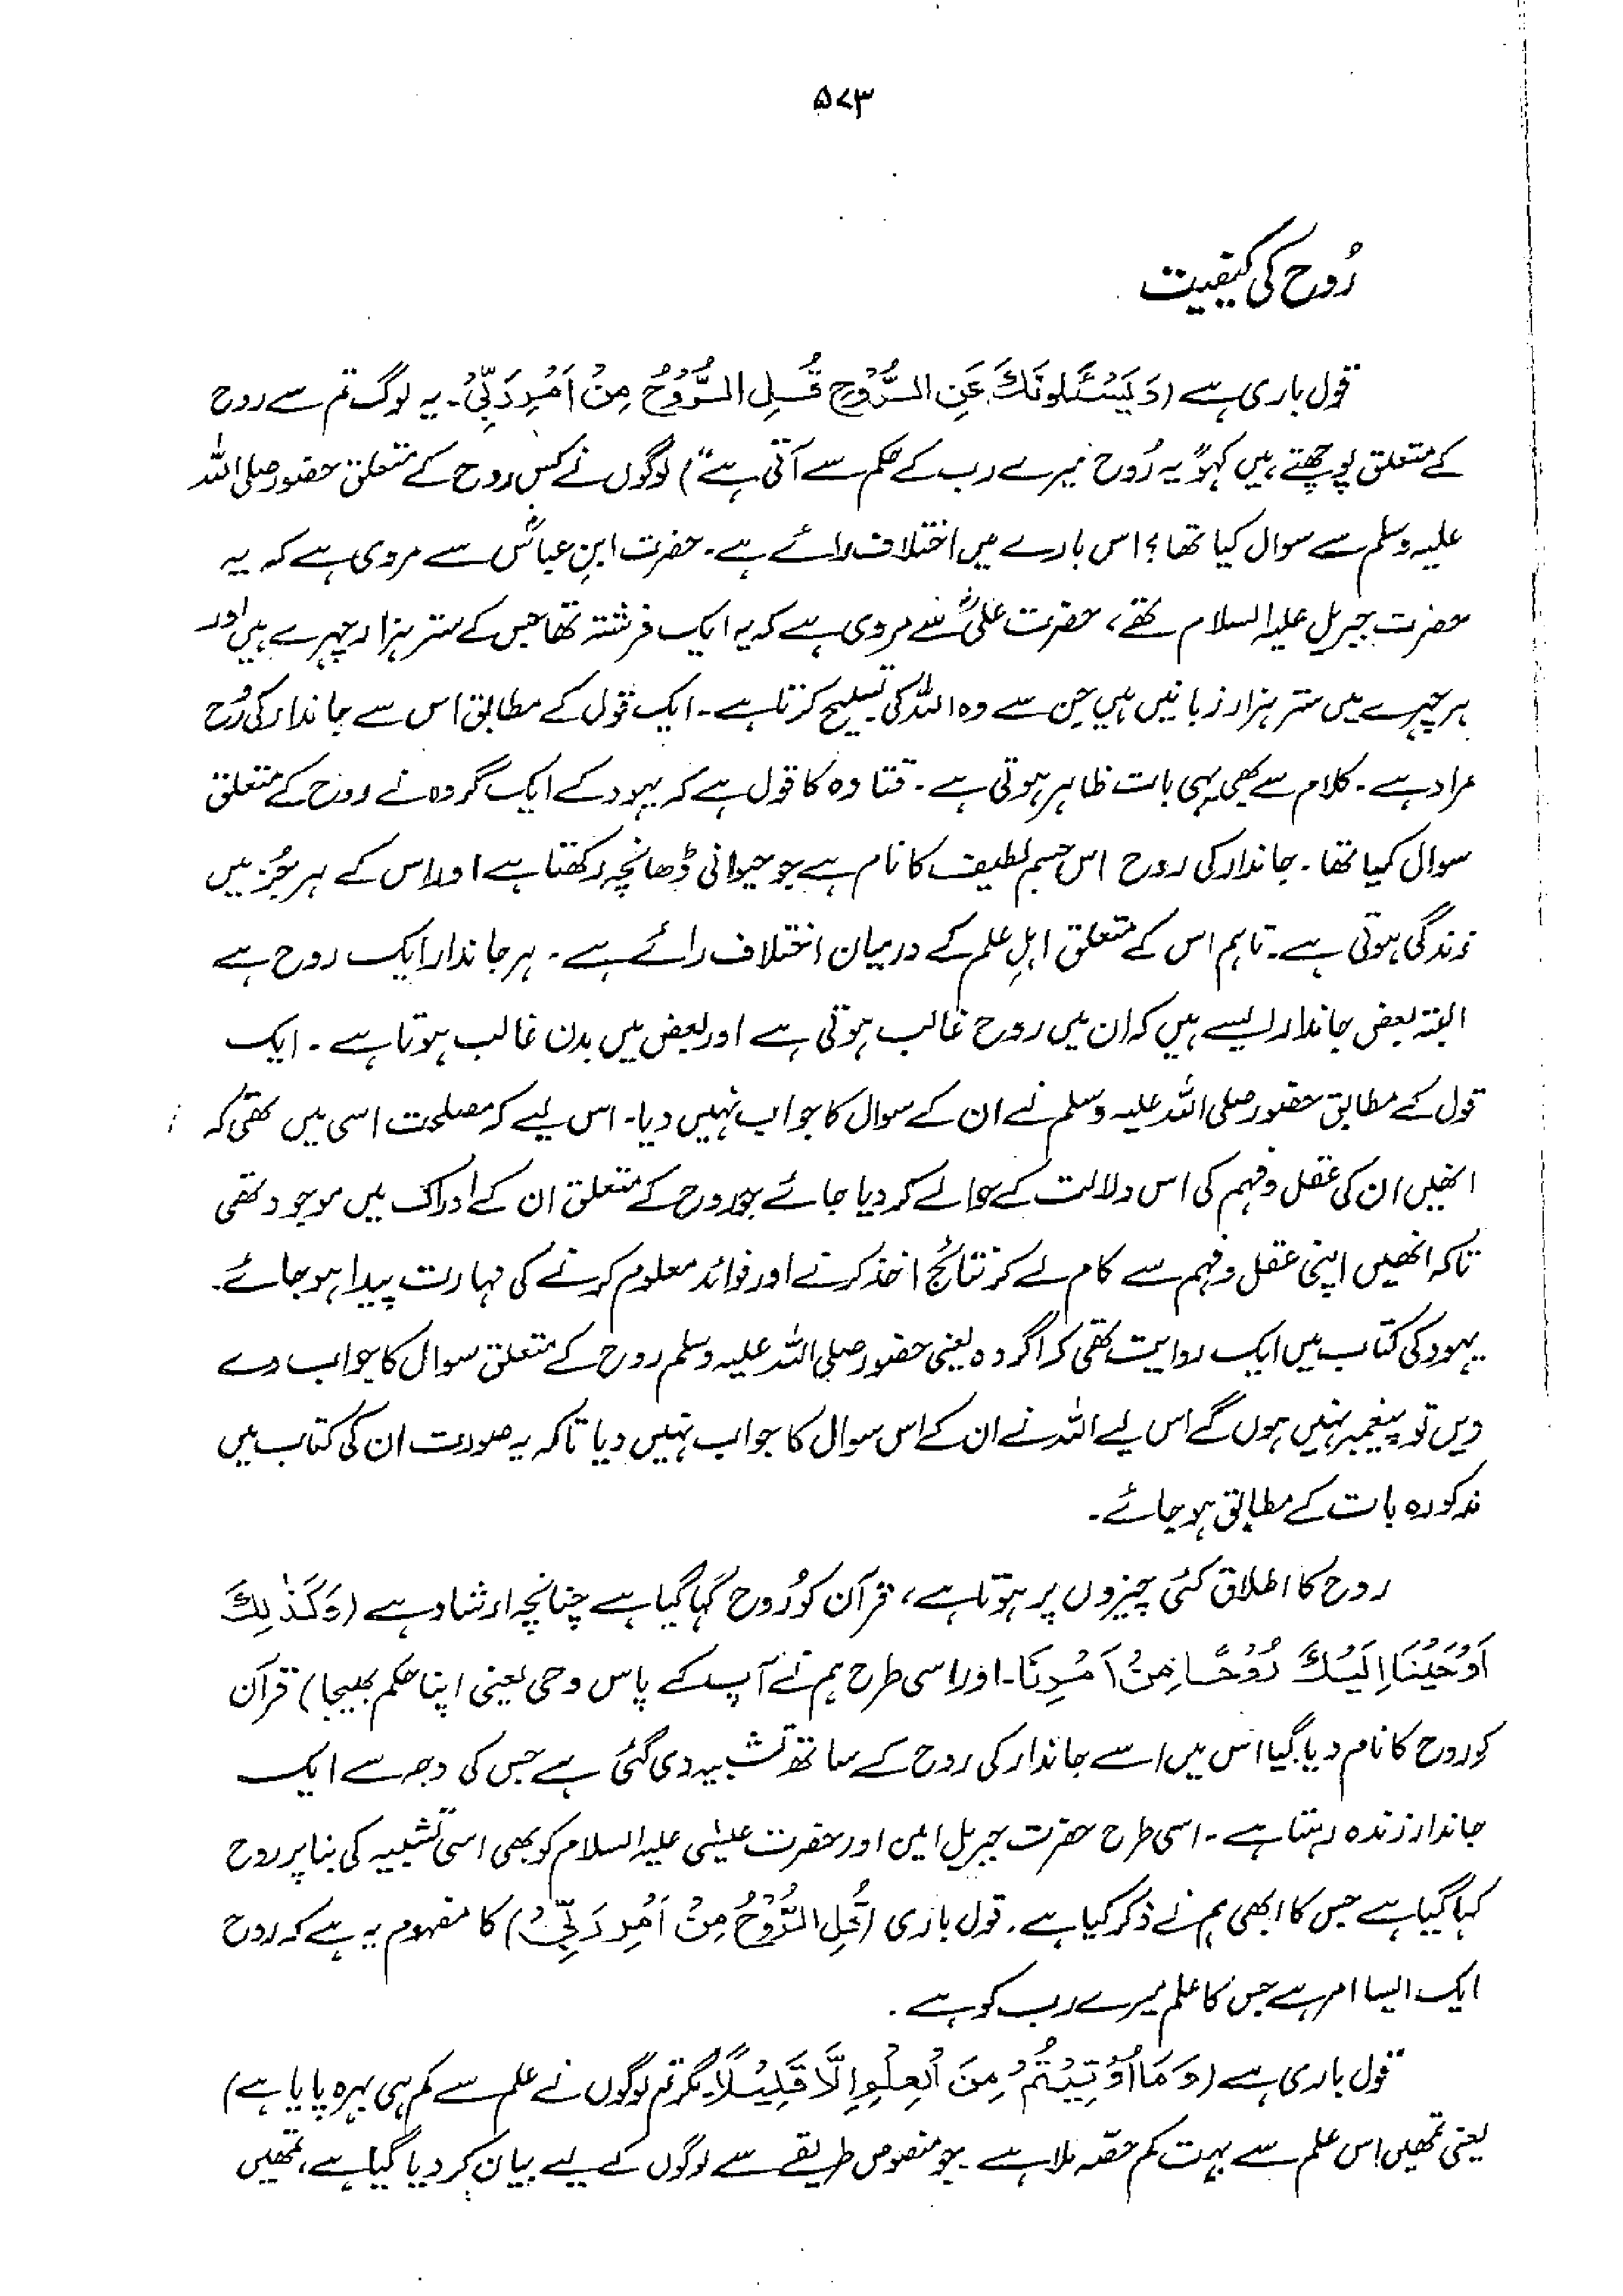 ۵۷۳
رُوح کی کیفیت
قول باری ہے (وَيَسْئَلُونَكَ عَنِ الرُّوْحِ قُلِ الرُّوْحُ مِنْ اَمْرِ رَبِّيْ۔ یہ لوگ تم سے روح
کے متعلق پوچھتے ہیں کہو "یہ رُوح میرے رب کے حکم سے آتی ہے") لوگوں نے کس روح کے متعلق حضور صلی اللہ
علیہ وسلم سے سوال کیا تھا؟ اس بارے میں اختلاف رائے ہے۔ حضرت ابنِ عباسؓ سے مروی ہے کہ یہ
حضرت جبریل علیہ السلام تھے، حضرت علیؓ سے مروی ہے کہ یہ ایک فرشتہ تھا جس کے ستر ہزار چہرے ہیں اور
ہر چہرے میں ستر ہزار زبانیں ہیں جن سے وہ اللہ کی تسبیح کرتا ہے۔ ایک قول کے مطابق اس سے جاندار کی رُوح
مراد ہے۔ کلام سے بھی یہی بات ظاہر ہوتی ہے۔ قتادہ کا قول ہے کہ یہود کے ایک گروہ نے روح کے متعلق
سوال کیا تھا۔ جاندار کی روح اس جسم لطیف کا نام ہے جو حیوانی ڈھانچہ رکھتا ہے اور اس کے ہر جُز میں
زندگی ہوتی ہے۔ تاہم اس کے متعلق اہلِ علم کے درمیان اختلاف رائے ہے۔ ہر جاندار ایک روح ہے
البتہ بعض جاندار ایسے ہیں کہ ان میں روح غالب ہوتی ہے اور بعض میں بدن غالب ہوتا ہے۔ ایک
قول کے مطابق حضور صلی اللہ علیہ وسلم نے ان کے سوال کا جواب نہیں دیا۔ اس لیے کہ مصلحت اسی میں تھی کہ
انھیں ان کی عقل و فہم کی اس دلالت کے حوالے کر دیا جائے جو روح کے متعلق ان کے ادراک میں موجود تھی
تاکہ انھیں اپنی عقل و فہم سے کام لے کر نتائج اخذ کرنے اور فوائد معلوم کرنے کی مہارت پیدا ہو جائے۔
یہود کی کتاب میں ایک روایت تھی کہ اگر وہ یعنی حضور صلی اللہ علیہ وسلم روح کے متعلق سوال کا جواب دے
دیں تو پیغمبر نہیں ہوں گے اس لیے اللہ نے ان کے اس سوال کا جواب نہیں دیا تاکہ یہ صورت ان کی کتاب میں
مذکورہ بات کے مطابق ہو جائے۔
روح کا اطلاق کئی چیزوں پر ہوتا ہے، قرآن کو رُوح کہا گیا ہے چنانچہ ارشاد ہے (وَكَذٰلِكَ
اَوْحَيْنَا اِلَيْكَ رُوْحًا مِنْ اَمْرِنَا۔ اور اسی طرح ہم نے آپ کے پاس وحی یعنی اپنا حکم بھیجا) قرآن
کو روح کا نام دیا گیا اس میں اسے جاندار کی روح کے ساتھ تشبیہ دی گئی ہے جس کی وجہ سے ایک
جاندار زندہ رہتا ہے۔ اسی طرح حضرت جبریل امین اور حضرت عیسٰی علیہ السلام کو بھی اسی تشبیہ کی بنا پر روح
کہا گیا ہے جس کا ابھی ہم نے ذکر کیا ہے۔ قول باری (قُلِ الرُّوْحُ مِنْ اَمْرِ رَبِّيْ) کا مفہوم یہ ہے کہ روح
ایک ایسا امر ہے جس کا علم میرے رب کو ہے۔
قول باری ہے (وَمَا اُوْتِيْتُمْ مِنَ الْعِلْمِ اِلَّا قَلِيْلًا۔ مگر تم لوگوں نے علم سے کم ہی بہرہ پایا ہے)
یعنی تمھیں اس علم سے بہت کم حصّہ ملا ہے۔ جو منصوص طریقے سے لوگوں کے لیے بیان کر دیا گیا ہے، تمھیں